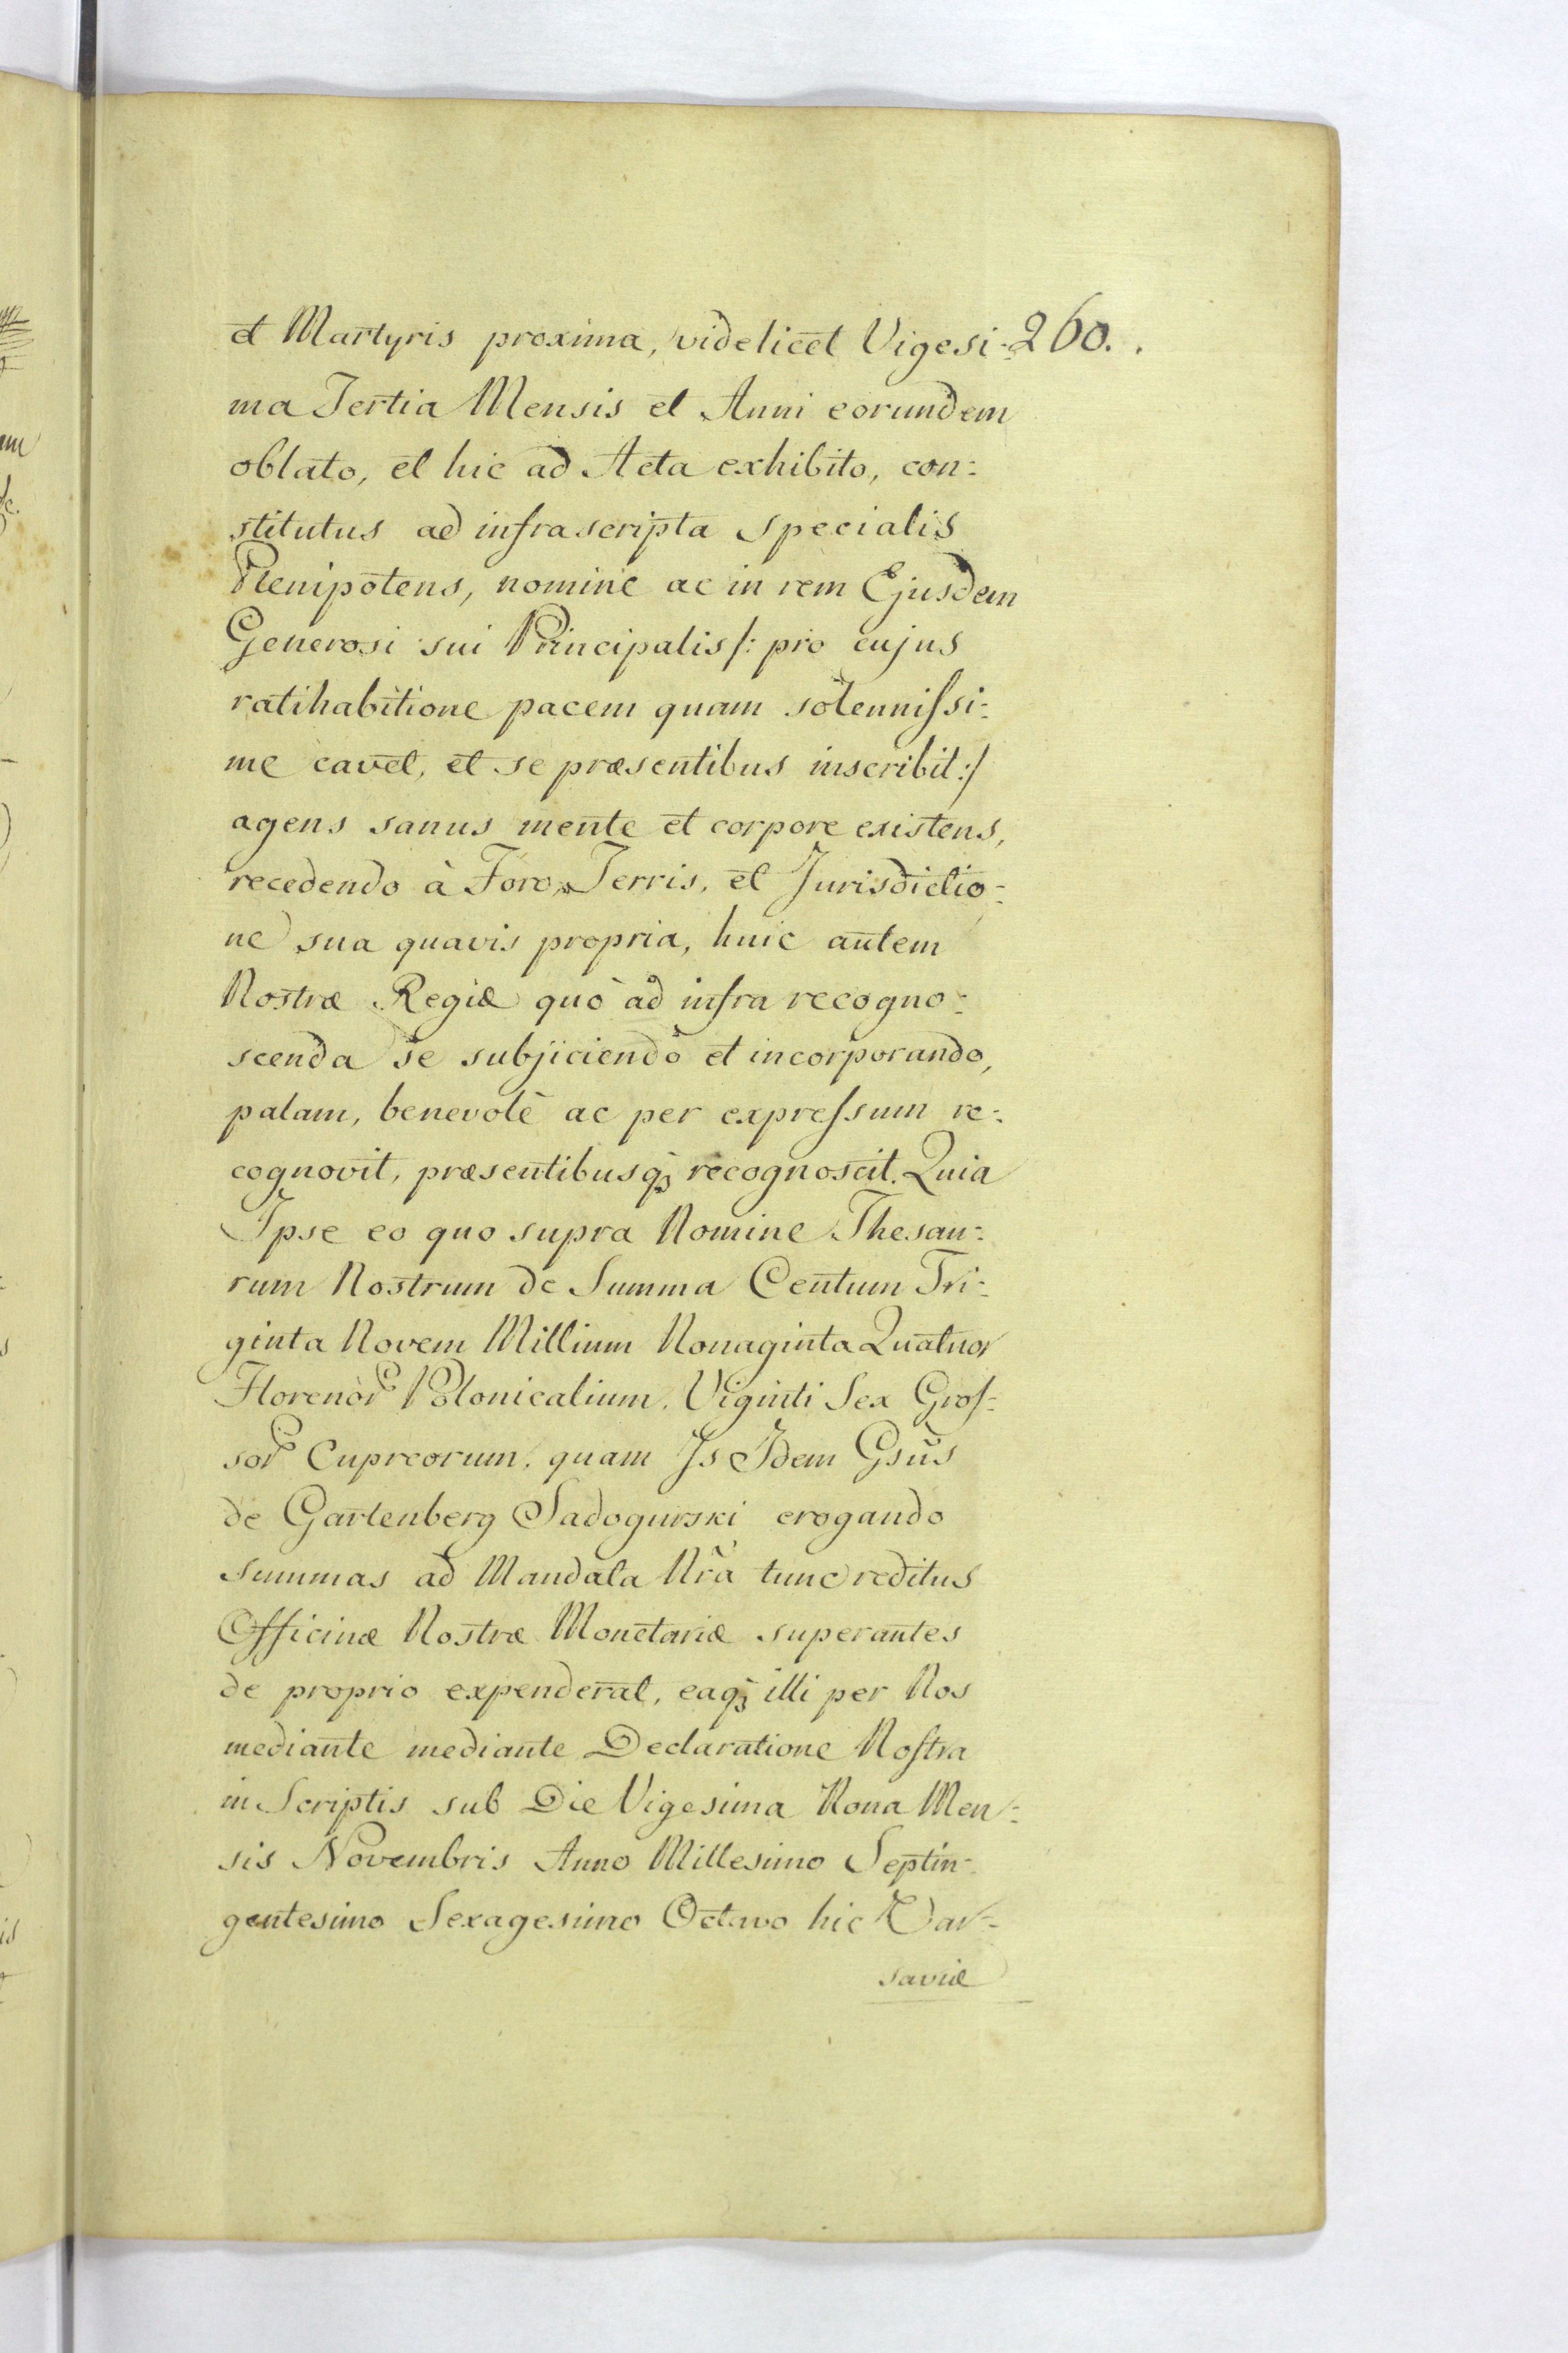 et Martyris proxima, videlicet Vigesi-: 260..
ma Tertia Mensis et Anni eorundem
oblato, et hic ad Acta exhibito, con-:
stitutus ad infrascripta specialis
Plenipotens, nomine ac in rem Ejusdem
Generosi sui Principalis /: pro cujus
ratihabitione pacem quam solennissi-:
me cavet, et se præsentibus inscribit :/
agens sanus mente et corpore existens,
recedendo à Foro, Terris, et Jurisdictio-:
ne sua quavis propria, huic autem
Nostræ Regiæ quò ad infra recogno-:
scenda se subjiciendo et incorporando,
palam, benevolè ac per expressum re-:
cognovit, præsentibusq; recognoscit. Quia
Ipse eo quo supra Nomine Thesau-:
rum Nostrum de Summa Centum Tri-:
ginta Novem Millium Nonaginta Quatuor
Florenor Polonicalium, Viginti Sex Gros-:
sor Cupreorum, quam Is Idem Gsũs
de Gartenberg Sadogurski erogando
summas ad Mandata Nrã tunc reditus
Officinæ Nostræ Monetariæ superantes
de proprio expenderat, eaq; illi per Nos
mediante mediante Declaratione Nostra
in Scriptis sub Die Vigesima Nona Men-:
sis Novembris Anno Millesimo Septin-
gentesimo Sexagesimo Octavo hic Var-
saviæ